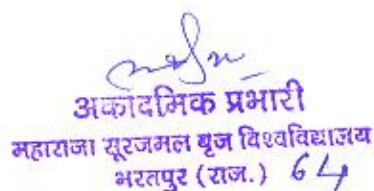 अकादमिक प्रभारी
महाराजा सूरजमल बृज विश्वविद्यालय
भरतपुर (राज.) 64